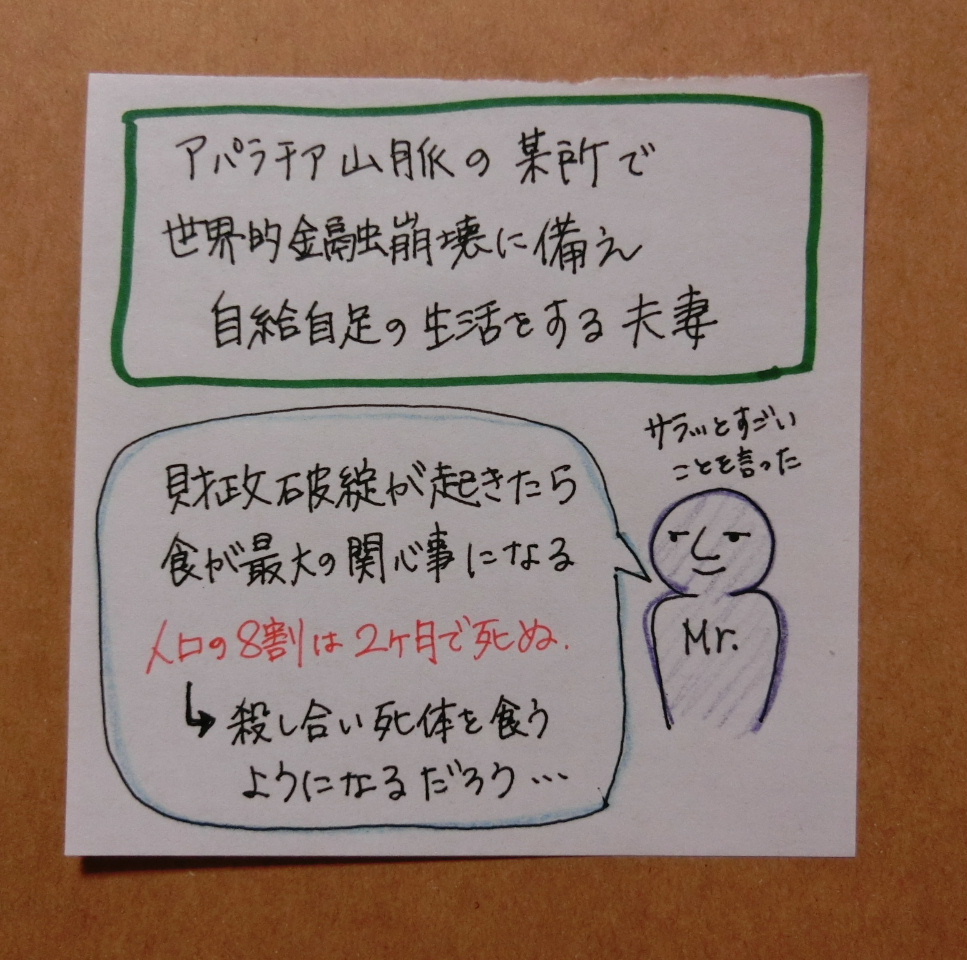 アパラチア山脈の某所で
世界的金融崩壊に備え
自給自足の生活をする夫妻
サラッとすごい
ことを言った
財政破綻が起きたら
食が最大の関心事になる
人口の8割は2ヶ月で死ぬ.
↳殺し合い死体を食う
ようになるだろう…
Mr.